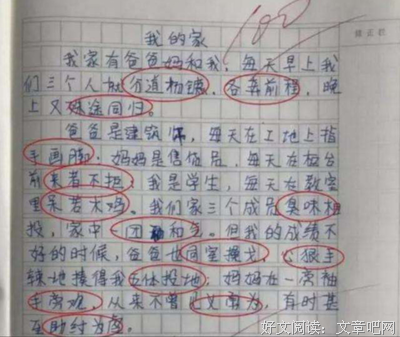 100
我的家
我家有爸爸妈和我,每天早上我
们三个人就分道扬镳,各奔前程,晚
上又殊途同归。
爸爸是建筑师,每天在工地上指
手画脚,妈妈是售货员,每天在柜台
前来者不拒,我是学生,每天在教室
里呆若木鸡。我们家三个成员臭味相
投,家中一团和气。但我的成绩不
好的时候,爸爸也同室操戈,心狠手
辣地揍得我五体投地,妈妈在一旁袖
手旁观,从来不曾见义勇为,有时甚
至助纣为虐。
好文阅读:文章吧网